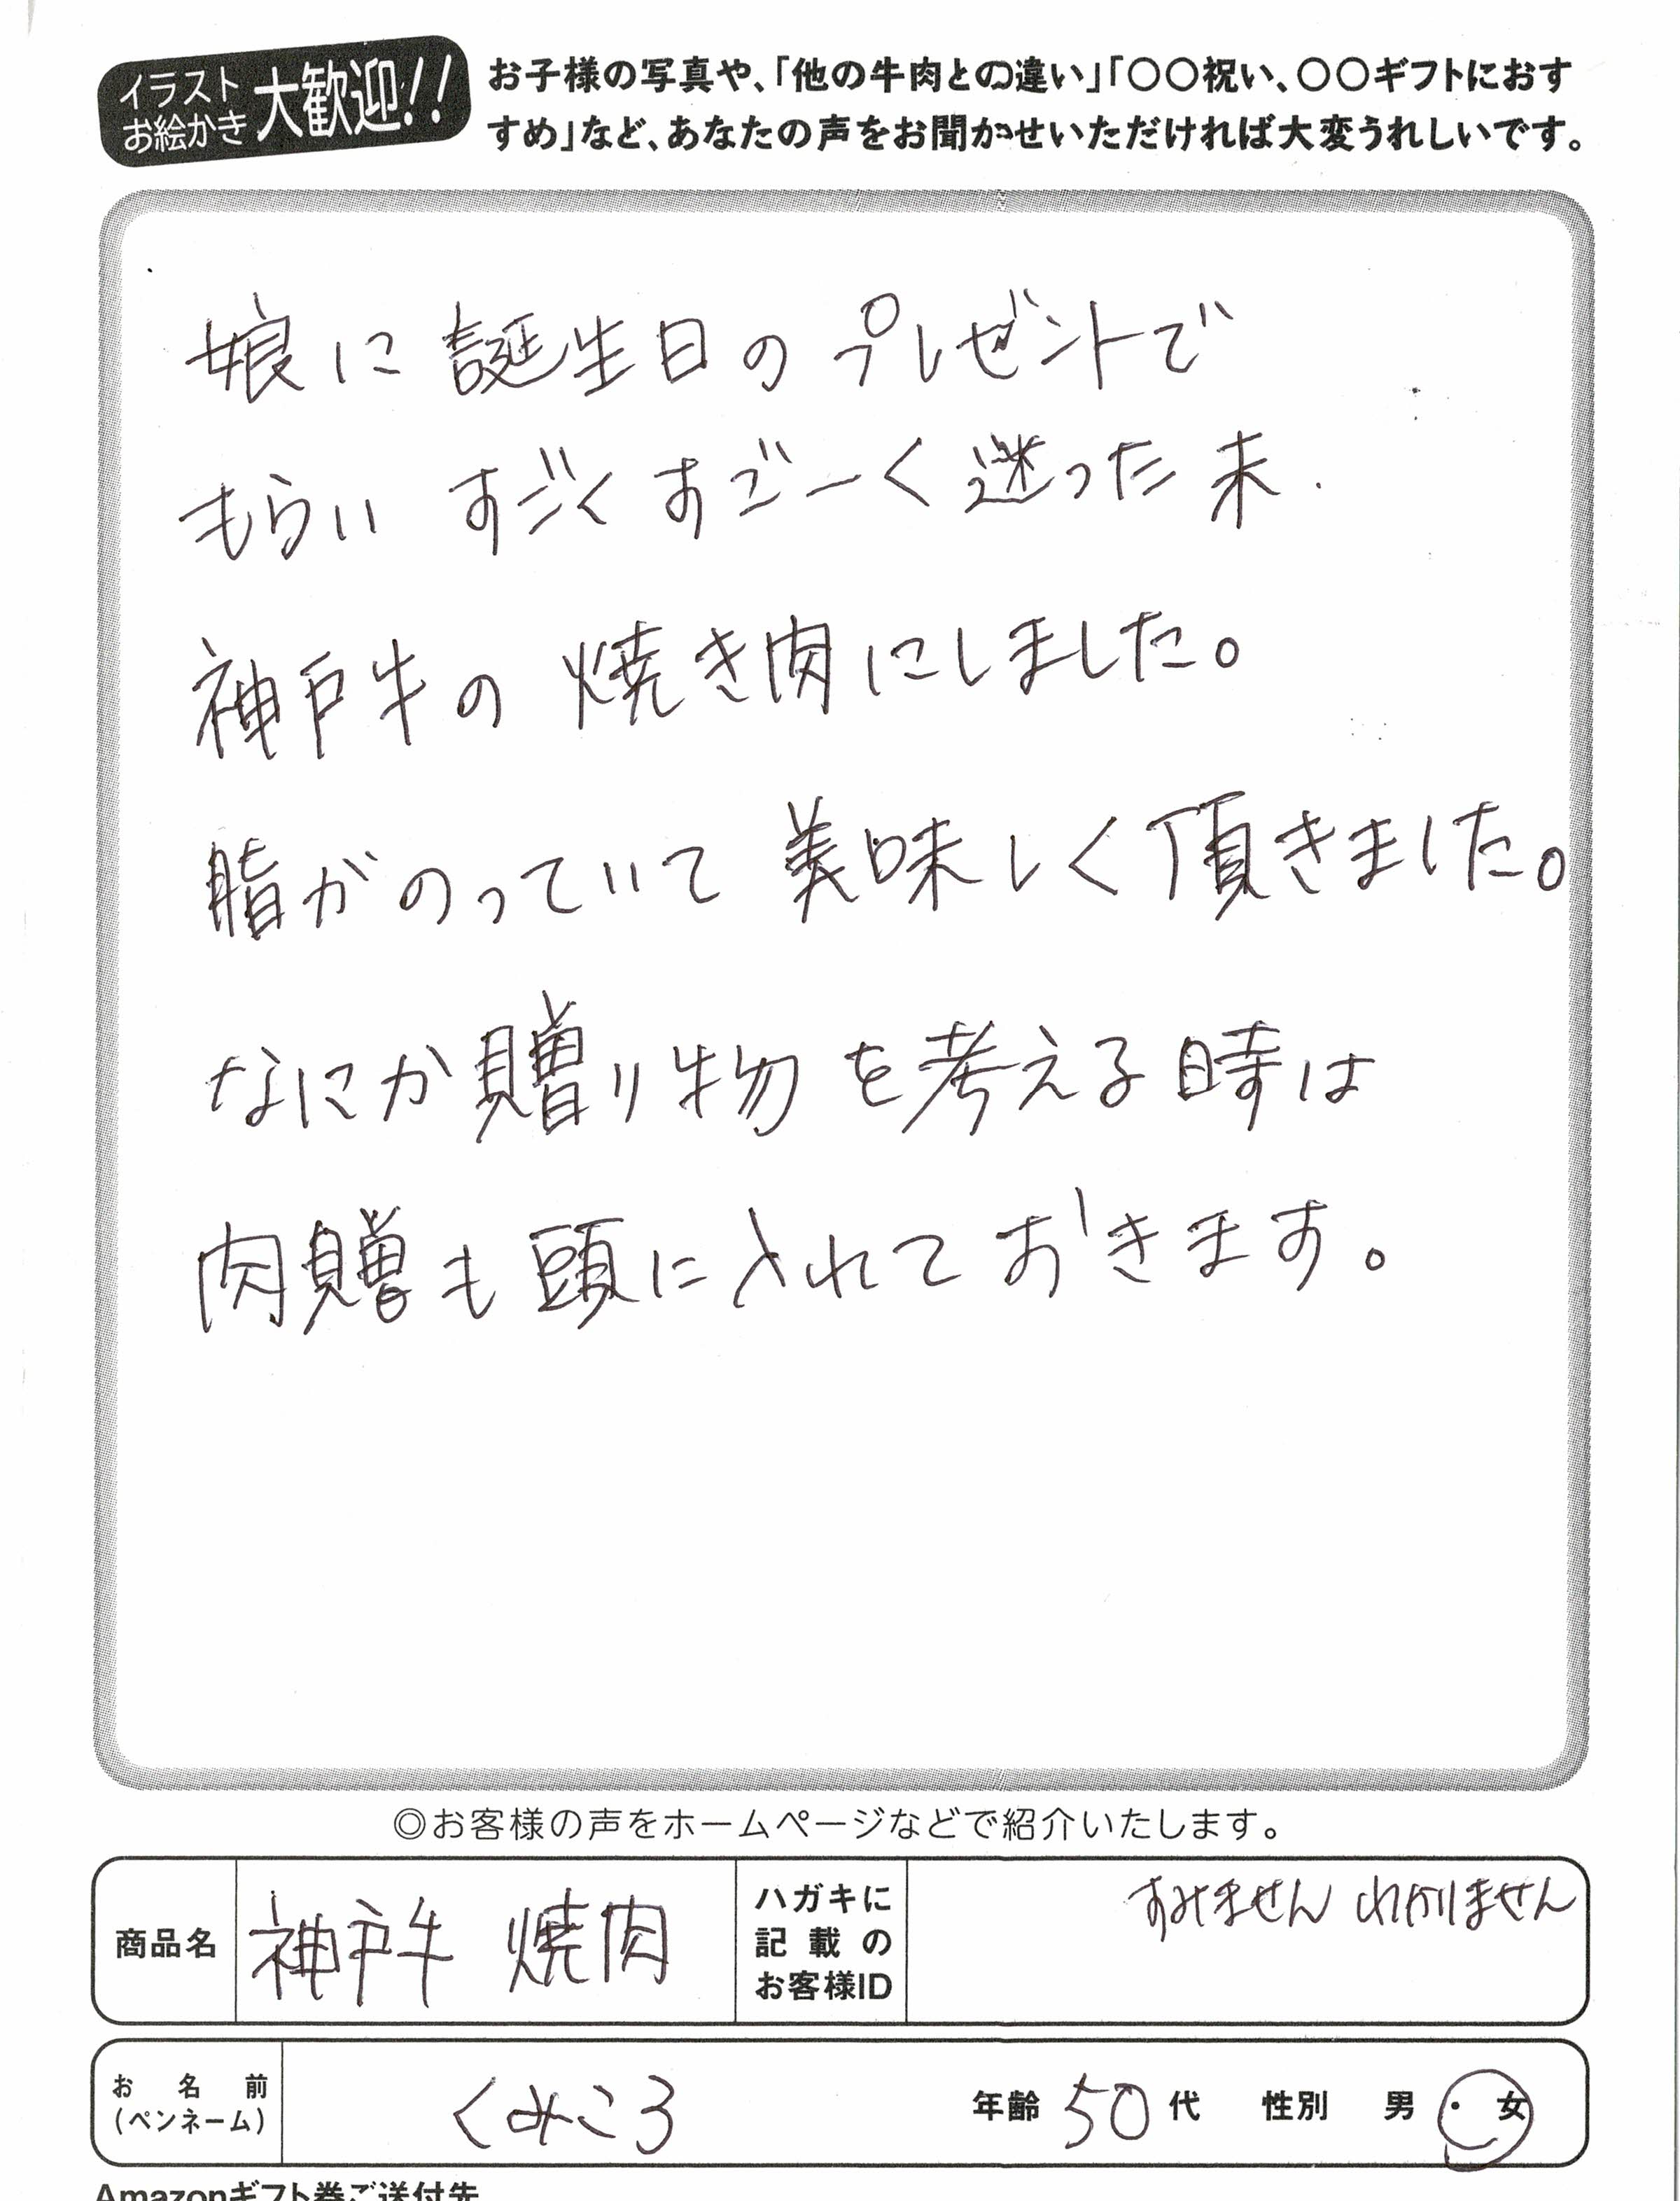 イラスト
お絵かき
大歓迎!!
お子様の写真や、「他の牛肉との違い」「○○祝い、○○ギフトにおす
すめ」など、あなたの声をお聞かせいただければ大変うれしいです。
娘に誕生日のプレゼントで
もらい すごくすごーく迷った末
神戸牛の焼き肉にしました。
脂がのっていて美味しく頂きました。
なにか贈り物を考える時は
肉贈も頭に入れておきます。
◎お客様の声をホームページなどで紹介いたします。
商品名
神戸牛 焼肉
ハガキに
記載の
お客様ID
すみません わかりません
お名前
(ペンネーム)
くみころ
年齢 50代 性別 男・女
Amazonギフト券ご送付先